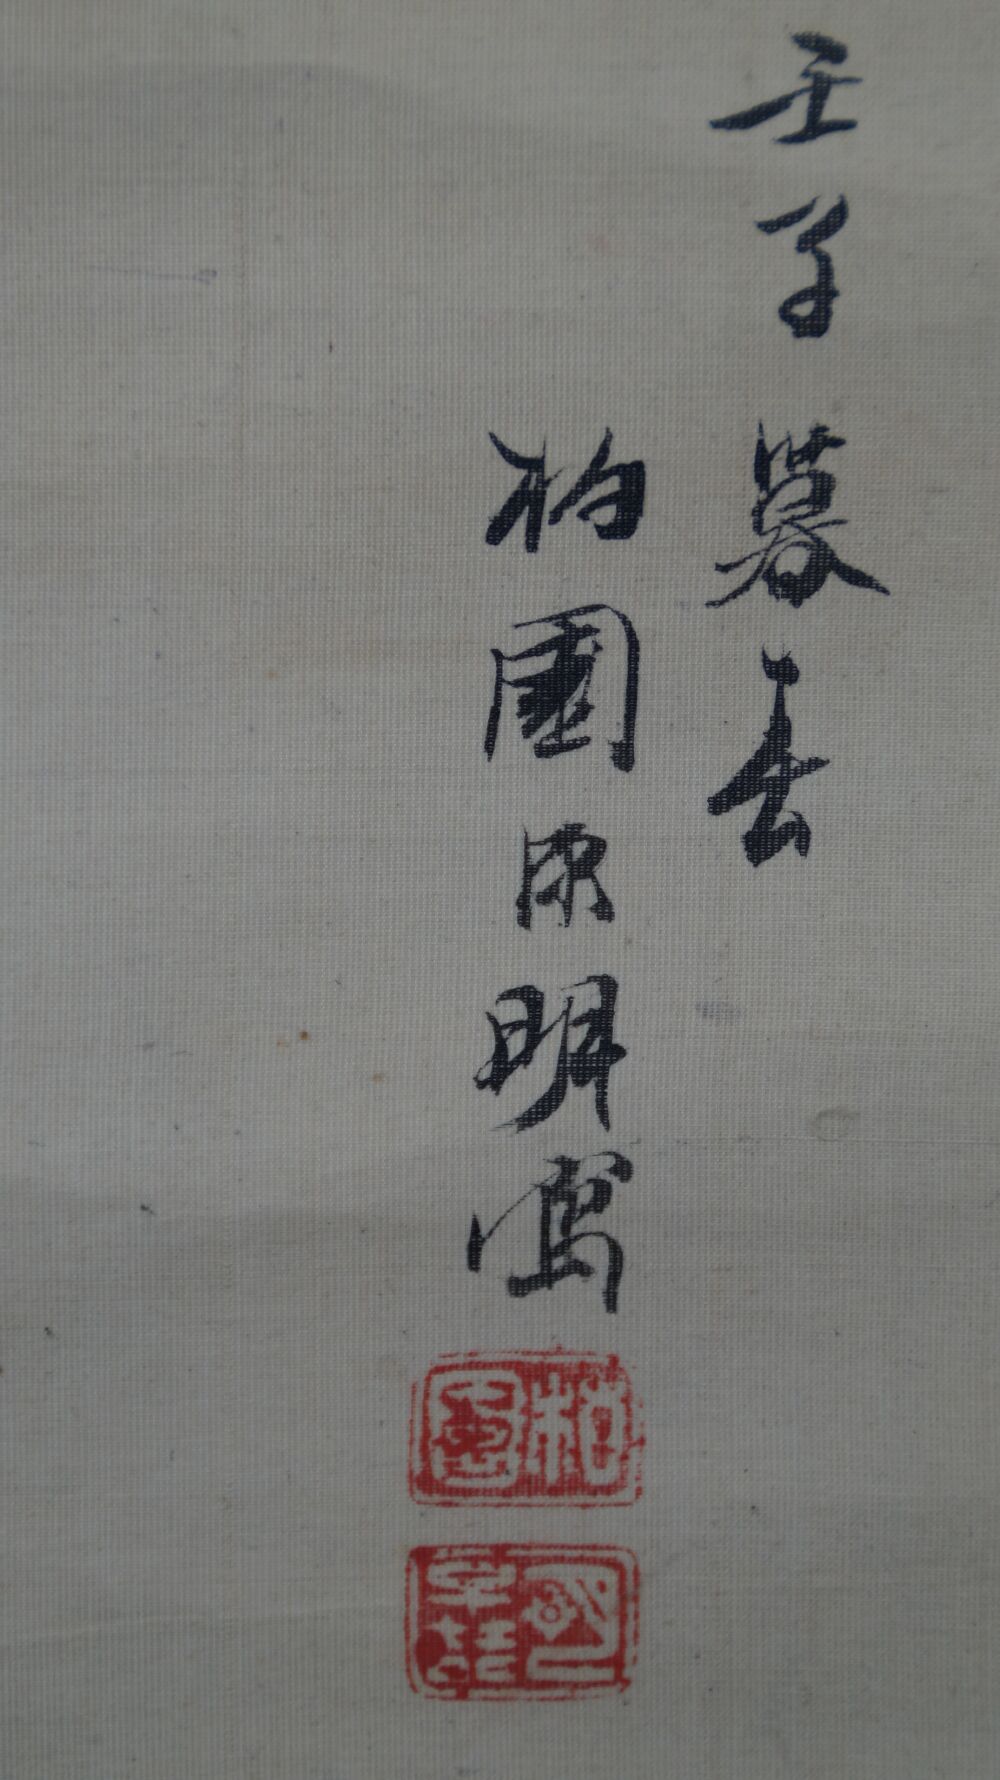 壬子暮春
柏園原明寫
柏園